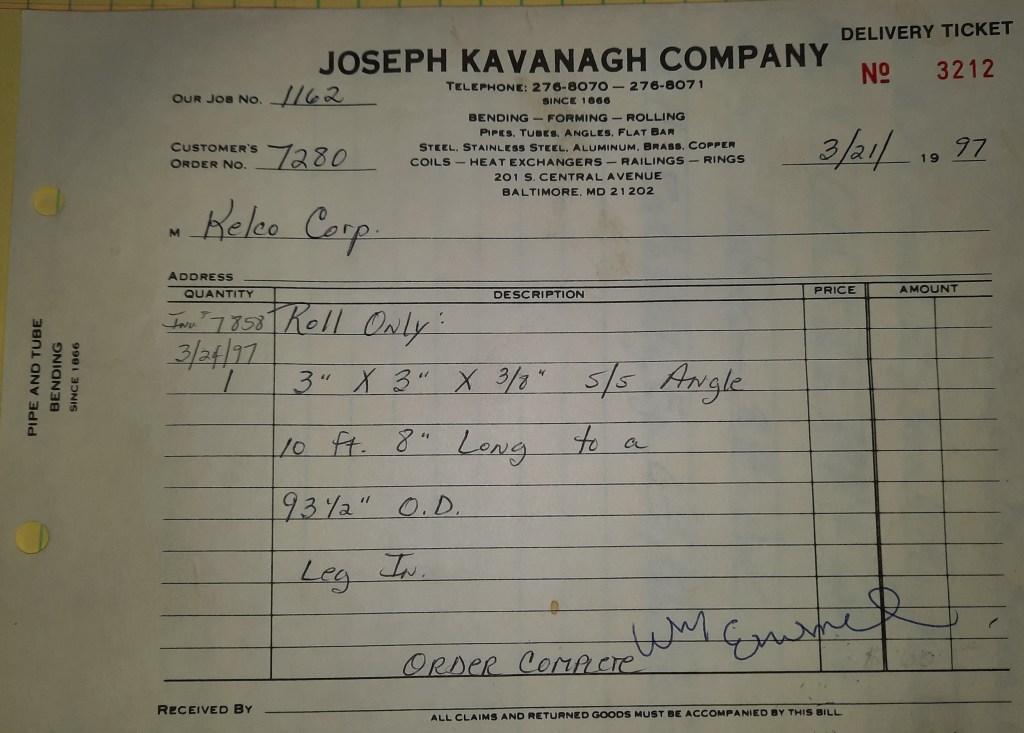 DELIVERY TICKET
JOSEPH KAVANAGH COMPANY
Nº 3212
TELEPHONE: 276-8070 — 276-8071
OUR JOB NO. 1162
SINCE 1866
BENDING — FORMING — ROLLING
PIPES, TUBES, ANGLES, FLAT BAR
STEEL, STAINLESS STEEL, ALUMINUM, BRASS, COPPER
CUSTOMER'S
ORDER NO. 7280
COILS — HEAT EXCHANGERS — RAILINGS — RINGS
3/21/ 19 97
201 S. CENTRAL AVENUE
BALTIMORE, MD 21202
M Kelco Corp.
ADDRESS
QUANTITY DESCRIPTION PRICE AMOUNT
Inv # 7858 Roll Only:
3/24/97
1 3" X 3" X 3/8" S/S Angle
10 ft. 8" Long to a
93 1/2" O.D.
Leg In.
Wm
ORDER COMPLETE
RECEIVED BY
ALL CLAIMS AND RETURNED GOODS MUST BE ACCOMPANIED BY THIS BILL.
PIPE AND TUBE
BENDING
SINCE 1866